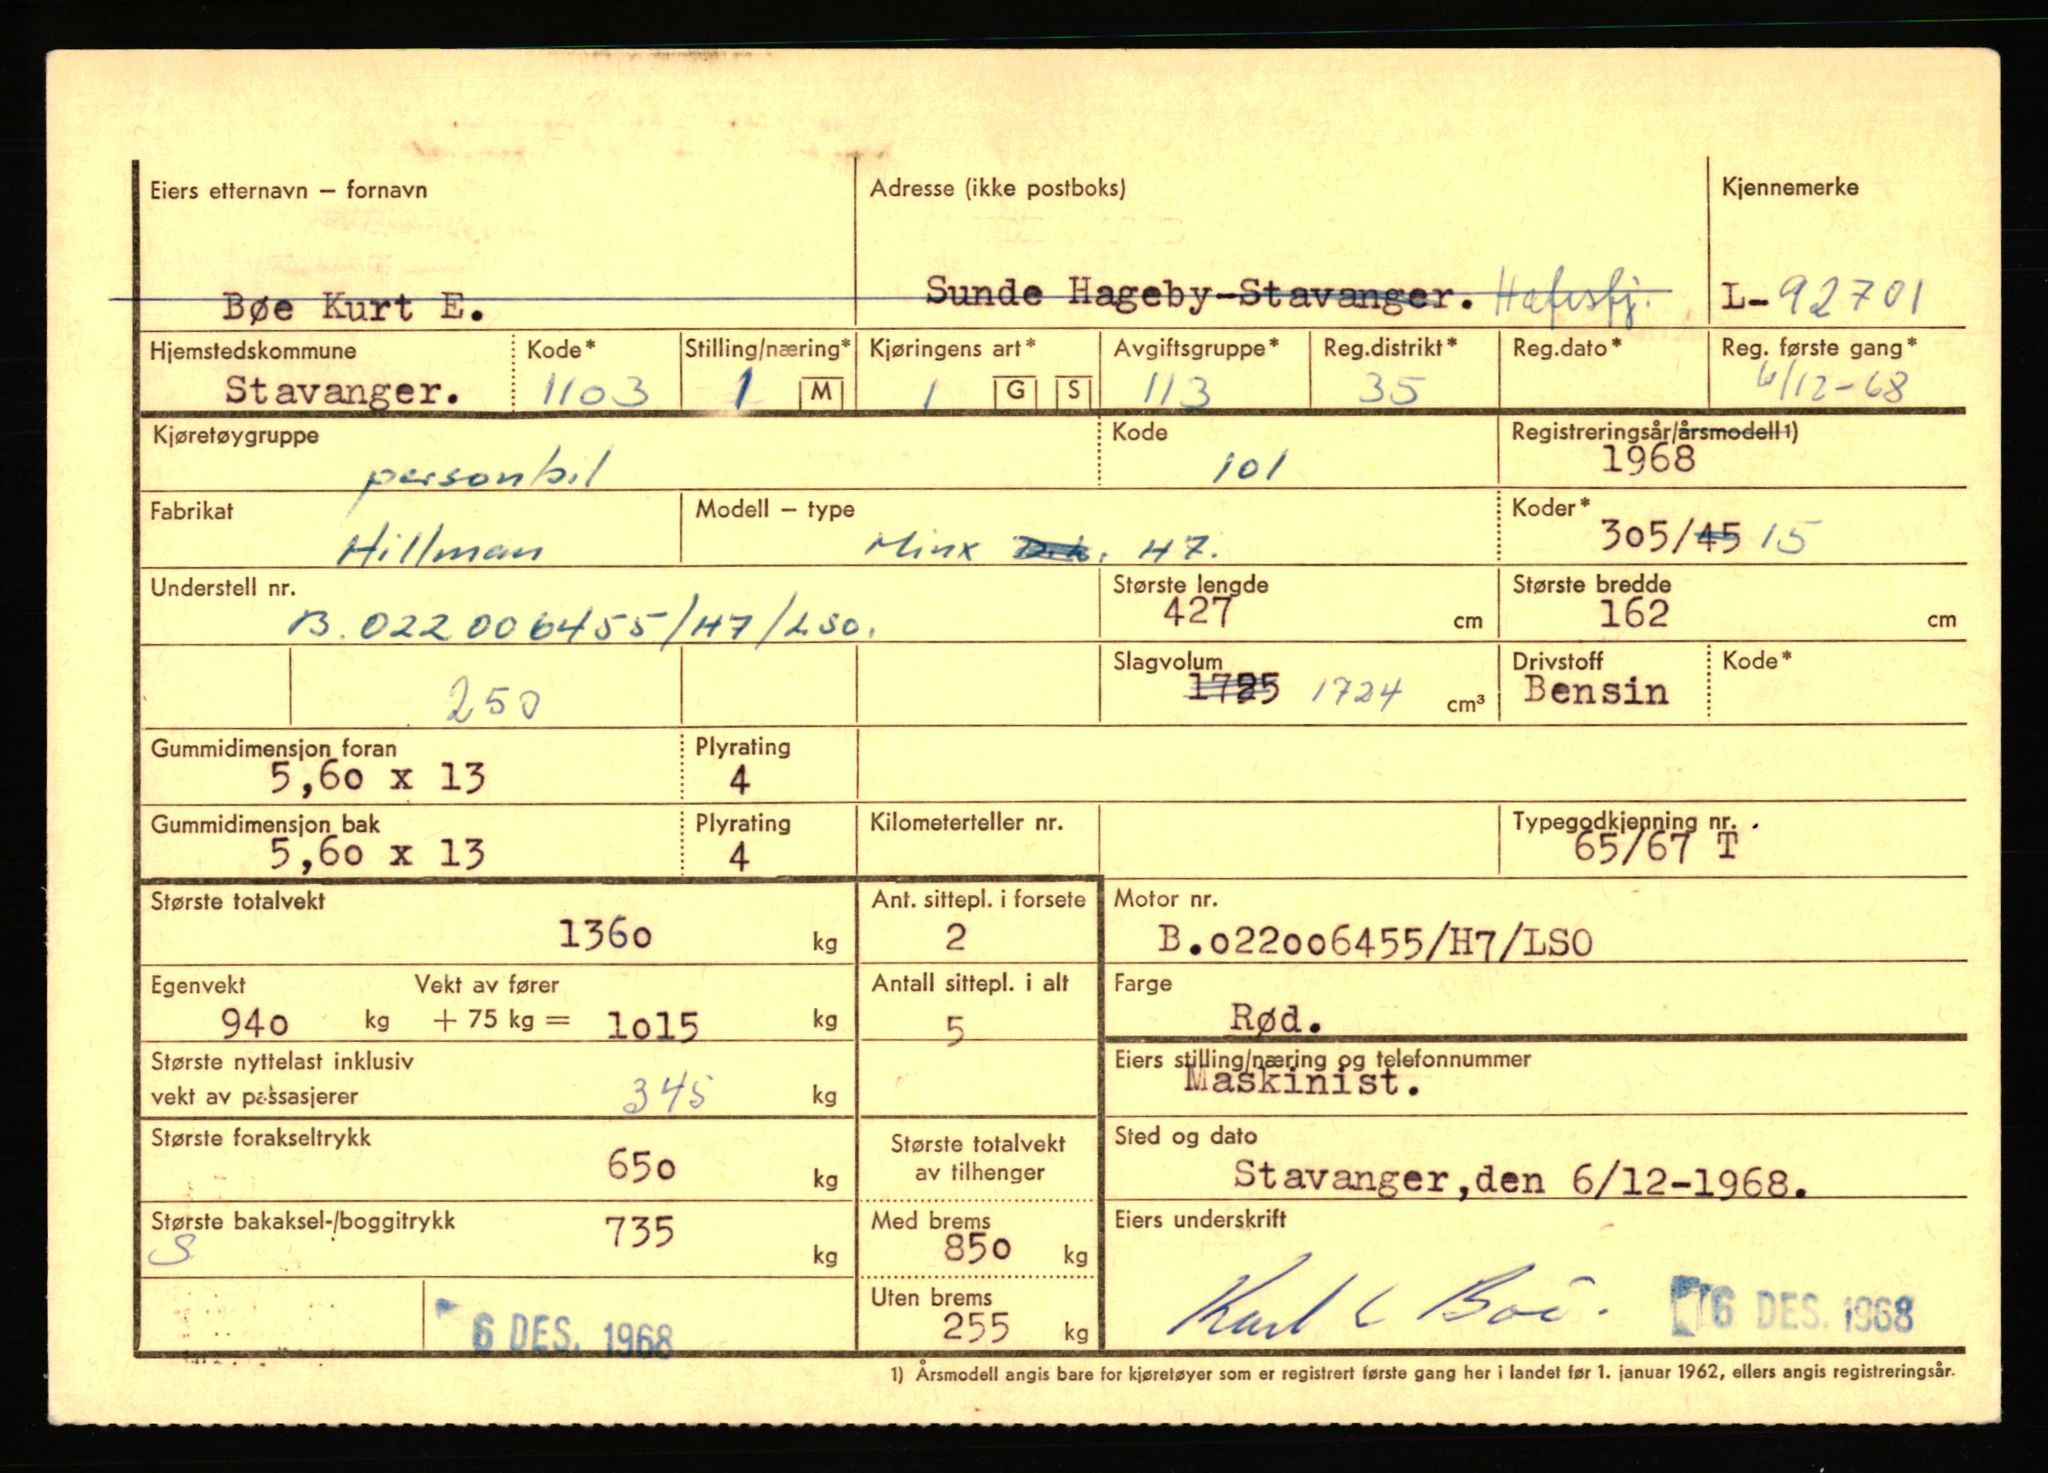 Eiers etternavn – fornavn Adresse (ikke postboks) Kjennemerke
Bøe Kurt E. Sunde Hageby-Stavanger. Hafrsfj. L-92701
Hjemstedskommune Kode* Stilling/næring* Kjøringens art* Avgiftsgruppe* Reg.distrikt* Reg.dato* Reg. første gang*
Stavanger. 1103 1 M 1 G S 113 35 6/12-68
Kjøretøygruppe Kode Registreringsår/årsmodell 1)
personbil 101 1968
Fabrikat Modell – type Koder*
Hillman Minx H7. 305/45 15
Understell nr. Største lengde Største bredde
B.022006455/H7/LSO. 427 cm 162 cm
Slagvolum Drivstoff Kode*
250 1725 1724 cm³ Bensin
Gummidimensjon foran Plyrating
5,60 x 13 4
Gummidimensjon bak Plyrating Kilometerteller nr. Typegodkjenning nr.
5,60 x 13 4 65/67 T
Største totalvekt Ant. sittepl. i forsete Motor nr.
1360 kg 2 B.022006455/H7/LSO
Egenvekt Vekt av fører Antall sittepl. i alt Farge
940 kg + 75 kg = 1015 kg 5 Rød.
Største nyttelast inklusiv Eiers stilling/næring og telefonnummer
vekt av passasjerer 345 kg Maskinist.
Største forakseltrykk Største totalvekt Sted og dato
650 kg av tilhenger Stavanger,den 6/12-1968.
Største bakaksel-/boggitrykk 735 kg Med brems Eiers underskrift
S 850 kg
Uten brems Kurt E Bøe.
6 DES. 1968 255 kg 6 DES. 1968
1) Årsmodell angis bare for kjøretøyer som er registrert første gang her i landet før 1. januar 1962, ellers angis registreringsår.